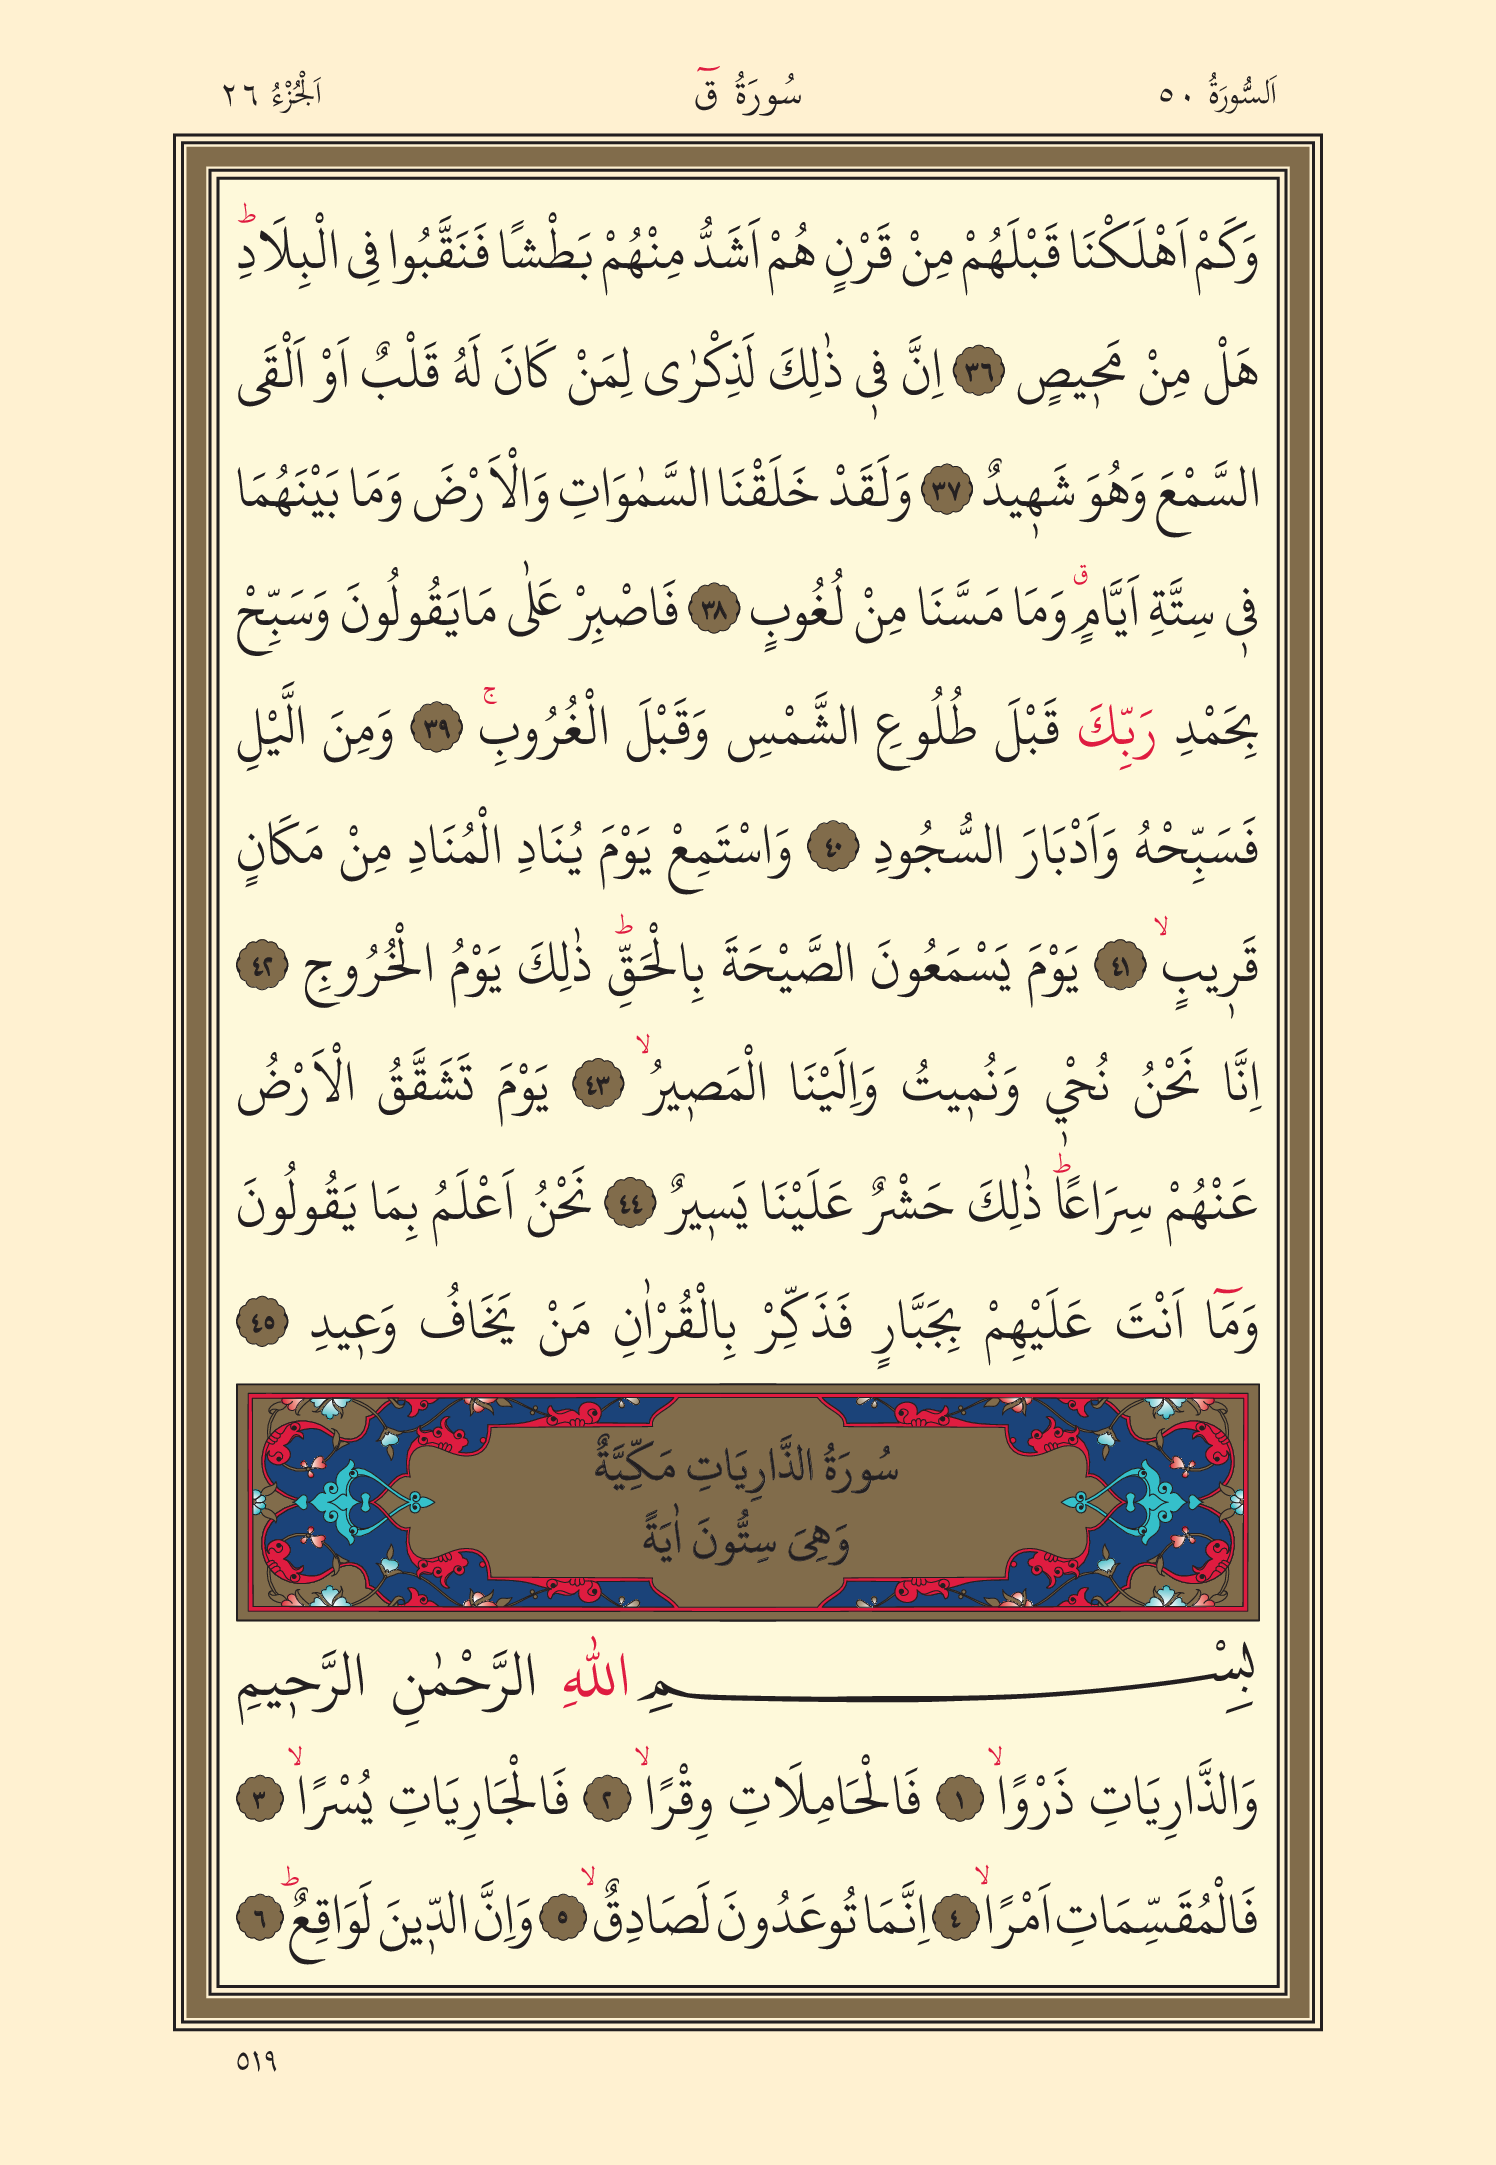 اَلسُّورَةُ ٥٠ سُورَةُ قٓ اَلْجُزْءُ ٢٦
وَكَمْ اَهْلَكْنَا قَبْلَهُمْ مِنْ قَرْنٍ هُمْ اَشَدُّ مِنْهُمْ بَطْشًا فَنَقَّبُوا فِى الْبِلَادِۜ
هَلْ مِنْ مَح۪يصٍ ٣٦ اِنَّ ف۪ى ذٰلِكَ لَذِكْرٰى لِمَنْ كَانَ لَهُ قَلْبٌ اَوْ اَلْقَى
السَّمْعَ وَهُوَ شَه۪يدٌ ٣٧ وَلَقَدْ خَلَقْنَا السَّمٰوَاتِ وَالْاَرْضَ وَمَا بَيْنَهُمَا
ف۪ى سِتَّةِ اَيَّامٍۗ وَمَا مَسَّنَا مِنْ لُغُوبٍ ٣٨ فَاصْبِرْ عَلٰى مَايَقُولُونَ وَسَبِّحْ
بِحَمْدِ رَبِّكَ قَبْلَ طُلُوعِ الشَّمْسِ وَقَبْلَ الْغُرُوبِۚ ٣٩ وَمِنَ الَّيْلِ
فَسَبِّحْهُ وَاَدْبَارَ السُّجُودِ ٤٠ وَاسْتَمِعْ يَوْمَ يُنَادِ الْمُنَادِ مِنْ مَكَانٍ
قَر۪يبٍۙ ٤١ يَوْمَ يَسْمَعُونَ الصَّيْحَةَ بِالْحَقِّۜ ذٰلِكَ يَوْمُ الْخُرُوجِ ٤٢
اِنَّا نَحْنُ نُحْي۪ وَنُم۪يتُ وَاِلَيْنَا الْمَص۪يرُۙ ٤٣ يَوْمَ تَشَقَّقُ الْاَرْضُ
عَنْهُمْ سِرَاعًاۜ ذٰلِكَ حَشْرٌ عَلَيْنَا يَس۪يرٌ ٤٤ نَحْنُ اَعْلَمُ بِمَا يَقُولُونَ
وَمَٓا اَنْتَ عَلَيْهِمْ بِجَبَّارٍ فَذَكِّرْ بِالْقُرْاٰنِ مَنْ يَخَافُ وَع۪يدِ ٤٥
سُورَةُ الذَّارِيَاتِ مَكِّيَّةٌ
وَهِىَ سِتُّونَ اٰيَةً
بِسْمِ اللّٰهِ الرَّحْمٰنِ الرَّح۪يمِ
وَالذَّارِيَاتِ ذَرْوًاۙ ١ فَالْحَامِلَاتِ وِقْرًاۙ ٢ فَالْجَارِيَاتِ يُسْرًاۙ ٣
فَالْمُقَسِّمَاتِ اَمْرًاۙ ٤ اِنَّمَا تُوعَدُونَ لَصَادِقٌۙ ٥ وَاِنَّ الدّ۪ينَ لَوَاقِعٌۜ ٦
٥١٩